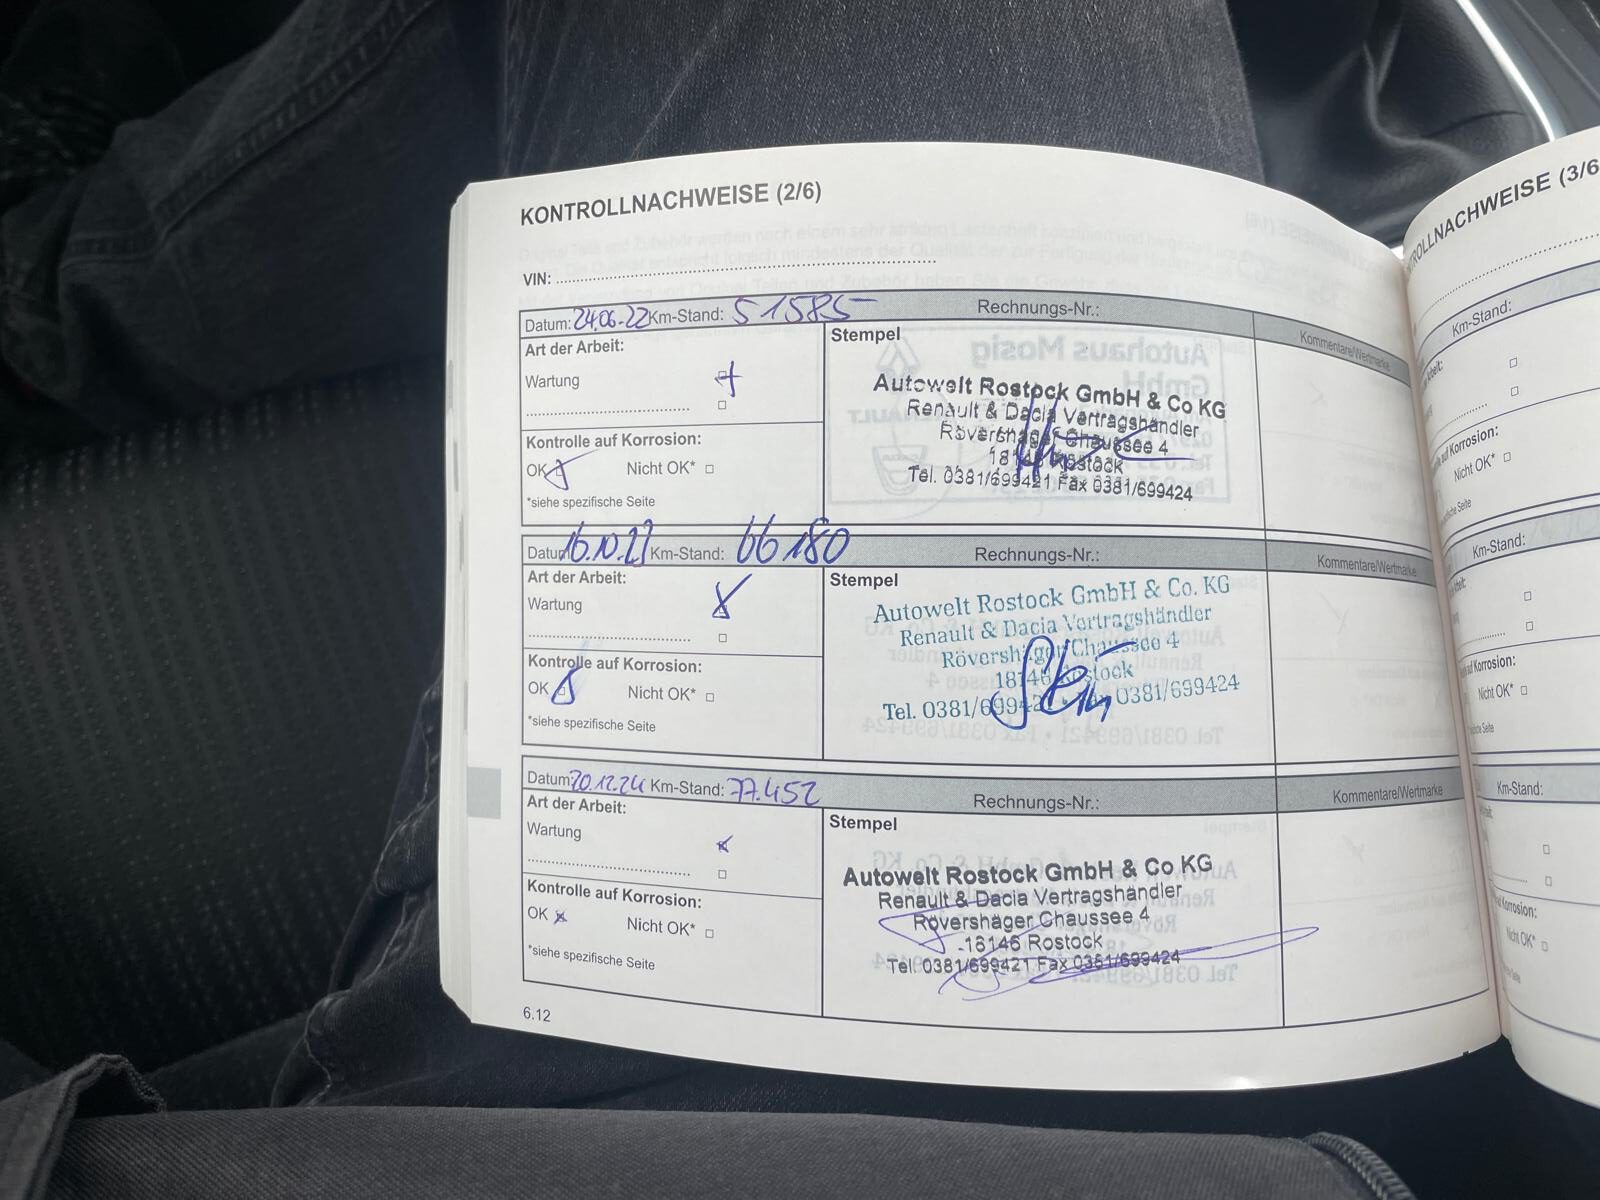 KONTROLLNACHWEISE (2/6)
VIN:
Datum: 24.06.22 Km-Stand: 51585 Rechnungs-Nr.:
Kommentare/Wertmarke
Art der Arbeit:
Wartung
Kontrolle auf Korrosion:
OK Nicht OK*
*siehe spezifische Seite
Stempel
Autowelt Rostock GmbH & Co KG
Renault & Dacia Vertragshändler
Rövershäger Chaussee 4
18146 Rostock
Tel. 0381/699421 Fax 0381/699424
Datum 16.10.23 Km-Stand: 66180 Rechnungs-Nr.:
Kommentare/Wertmarke
Art der Arbeit:
Wartung
Kontrolle auf Korrosion:
OK Nicht OK*
*siehe spezifische Seite
Stempel
Autowelt Rostock GmbH & Co. KG
Renault & Dacia Vertragshändler
Rövershäger Chaussee 4
18146 Rostock
Tel. 0381/699421 • Fax 0381/699424
Datum: 20.12.24 Km-Stand: 77.452 Rechnungs-Nr.:
Kommentare/Wertmarke
Art der Arbeit:
Wartung
Kontrolle auf Korrosion:
OK Nicht OK*
*siehe spezifische Seite
Stempel
Autowelt Rostock GmbH & Co KG
Renault & Dacia Vertragshändler
Rövershäger Chaussee 4
18146 Rostock
Tel. 0381/699421 Fax 0381/699424
6.12
(3/6
Km-Stand:
auf Korrosion:
Nicht OK*
Seite
Km-Stand:
auf Korrosion:
Nicht OK*
Seite
Km-Stand:
Korrosion:
Nicht OK*